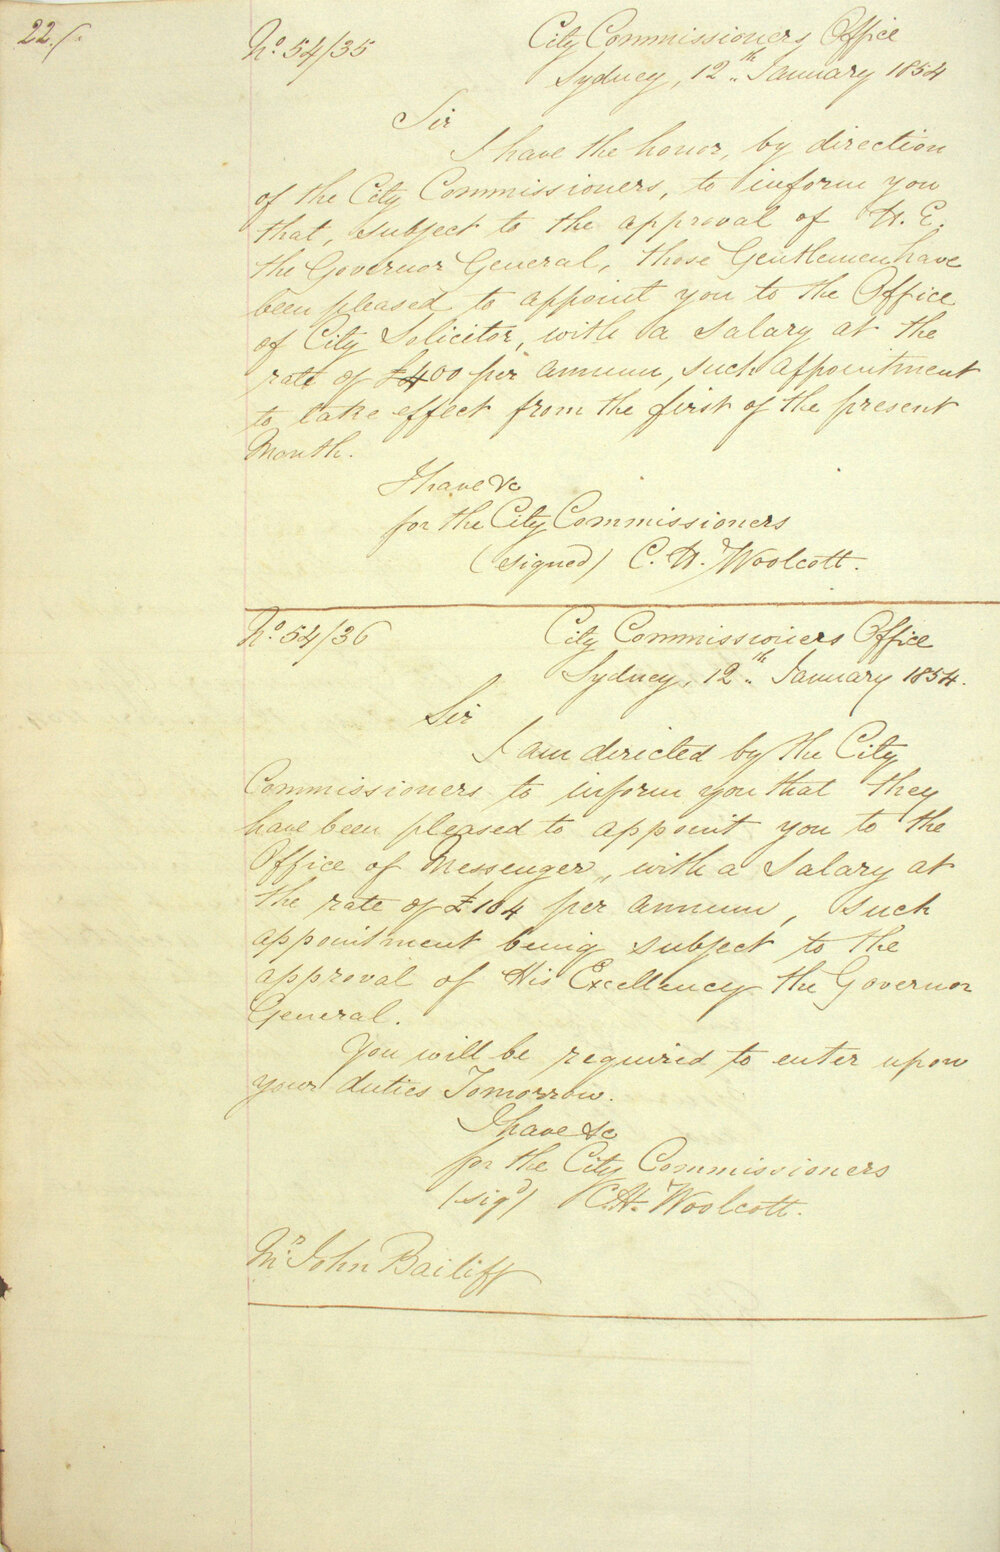 22./.
No. 54/35
City Commissioners Office
Sydney, 12th January 1854
Sir
I have the honor, by direction
of the City Commissioners, to inform you
that, subject to the approval of H. E.
the Governor General, those Gentlemen have
been pleased to appoint you to the Office
of City Solicitor, with a Salary at the
rate of £400 per annum, such appointment
to take effect from the first of the present
Month.
I have &c
for the City Commissioners
(signed) C. H. Woolcott.
No. 54/36
City Commissioners Office
Sydney, 12th January 1854.
Sir
I am directed by the City
Commissioners to inform you that they
have been pleased to appoint you to the
Office of Messenger, with a Salary at
the rate of £104 per annum, such
appointment being subject to the
approval of His Excellency the Governor
General.
You will be required to enter upon
your duties Tomorrow.
I have &c
for the City Commissioners
(sigd) C. H. Woolcott.
Mr. John Bailiff